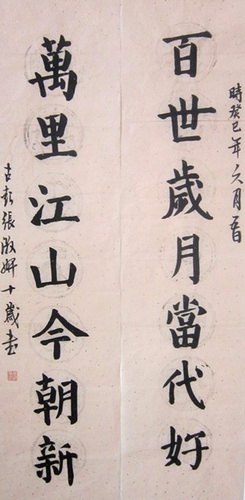 時癸巳年六月
百世歲月當代好
萬里江山今朝新
古彭張妍十歲書